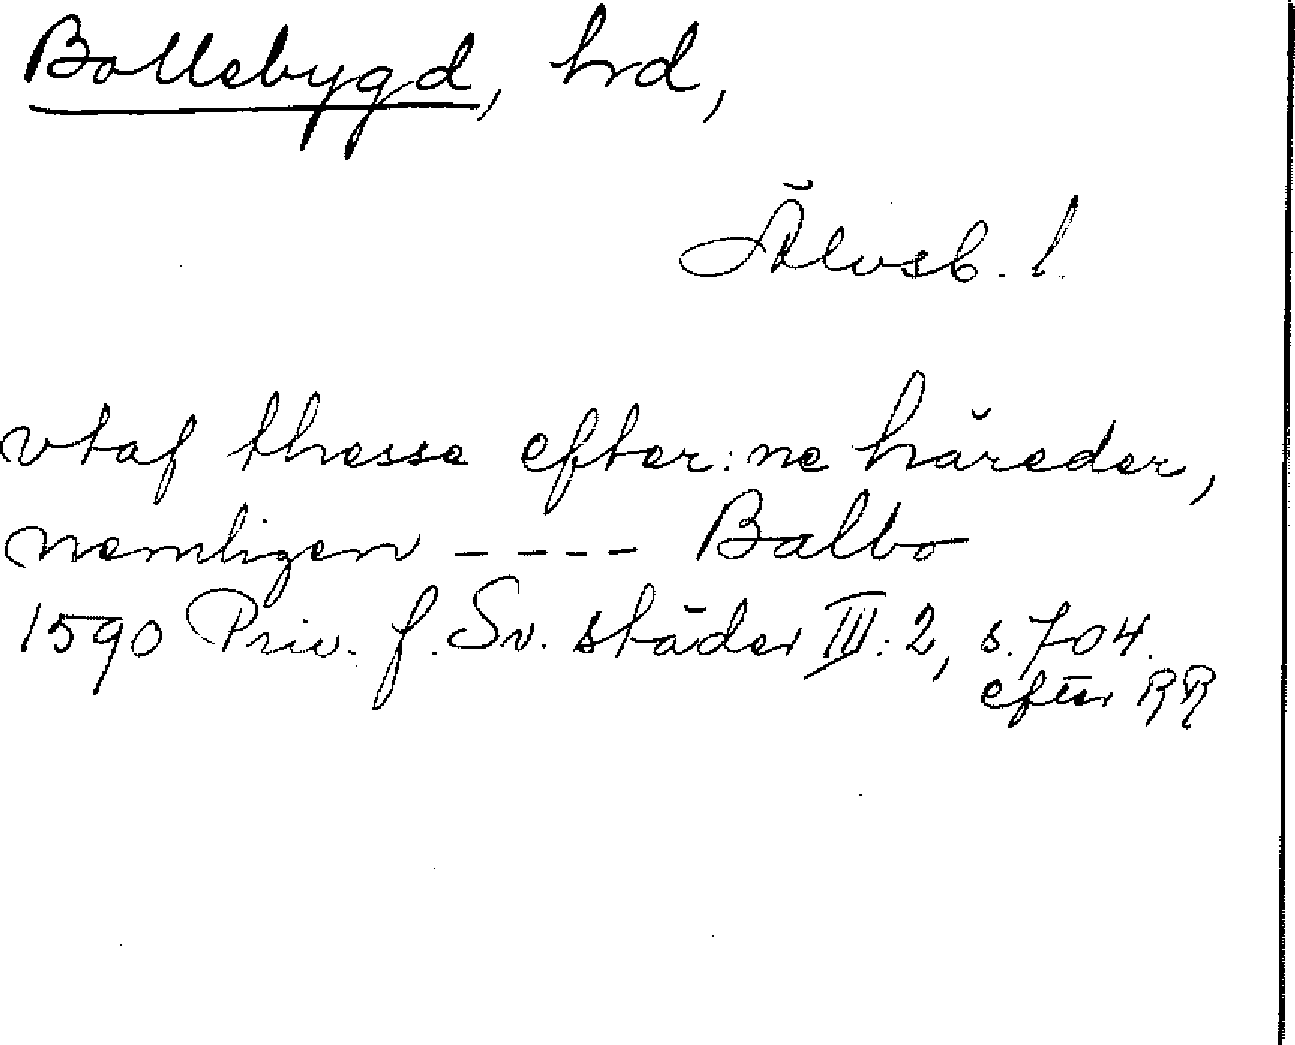 Bollebygd, hrd,
Älvsb. l.
vtaf thesse efter:ne häreder,
nemligen ---- Balbo
1590 Priv. f. Sv. städer III:2, s. 704.
efter RR